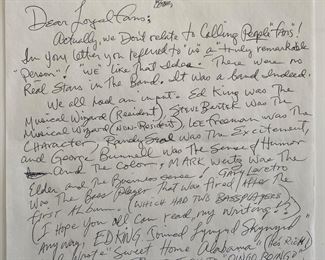 Dear Loyal Fans:
Actually, we Don't relate to Calling People "Fans"!
In your letter you refered to us a "truly remarkable
"Person"! "WE" like that Idea. There were no
Real Stars in the Band. It was a band Indeed.
We all had an input. Ed King was The
Musical Wizard (Resident), Steve Bartek was The
Musical Wizard (Non-Resident), LEE Freeman was The
Character, Randy Seol was The Excitement,
and George Bunnell was The Sense of Humor
And The Color; MARK Weitz Was The
Elder and The Business sense! Gary Lovetro
Was The Bass Player That was fired After The
first Album. (WHICH HAD TWO BASSPLAYERS)
(I Hope You All Can read, my writing!?)
Anyway, ED KING Joined Lynyrd Skynyrd
"Sweet Home Alabama" (He's RICH)
"OINGO BOINGO"